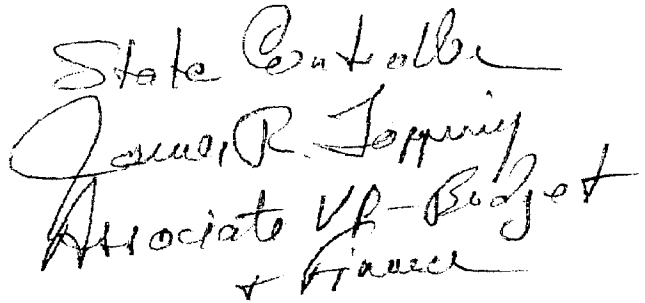 State Controller
James R. Topping
Associate VP-Budget
+ Finance